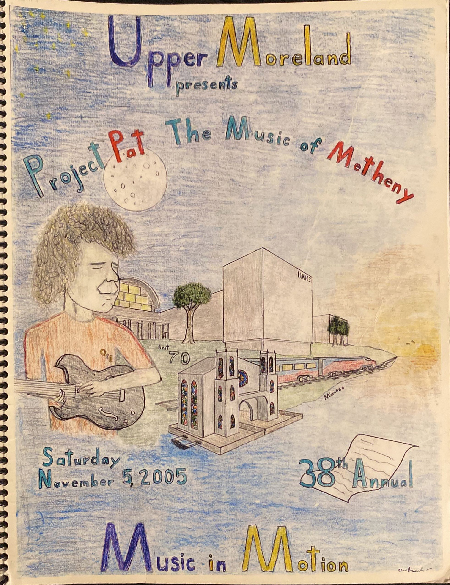 Upper Moreland
presents
Project Pat The Music of Metheny
70
Saturday
November 5, 2005
38th Annual
Music in Motion